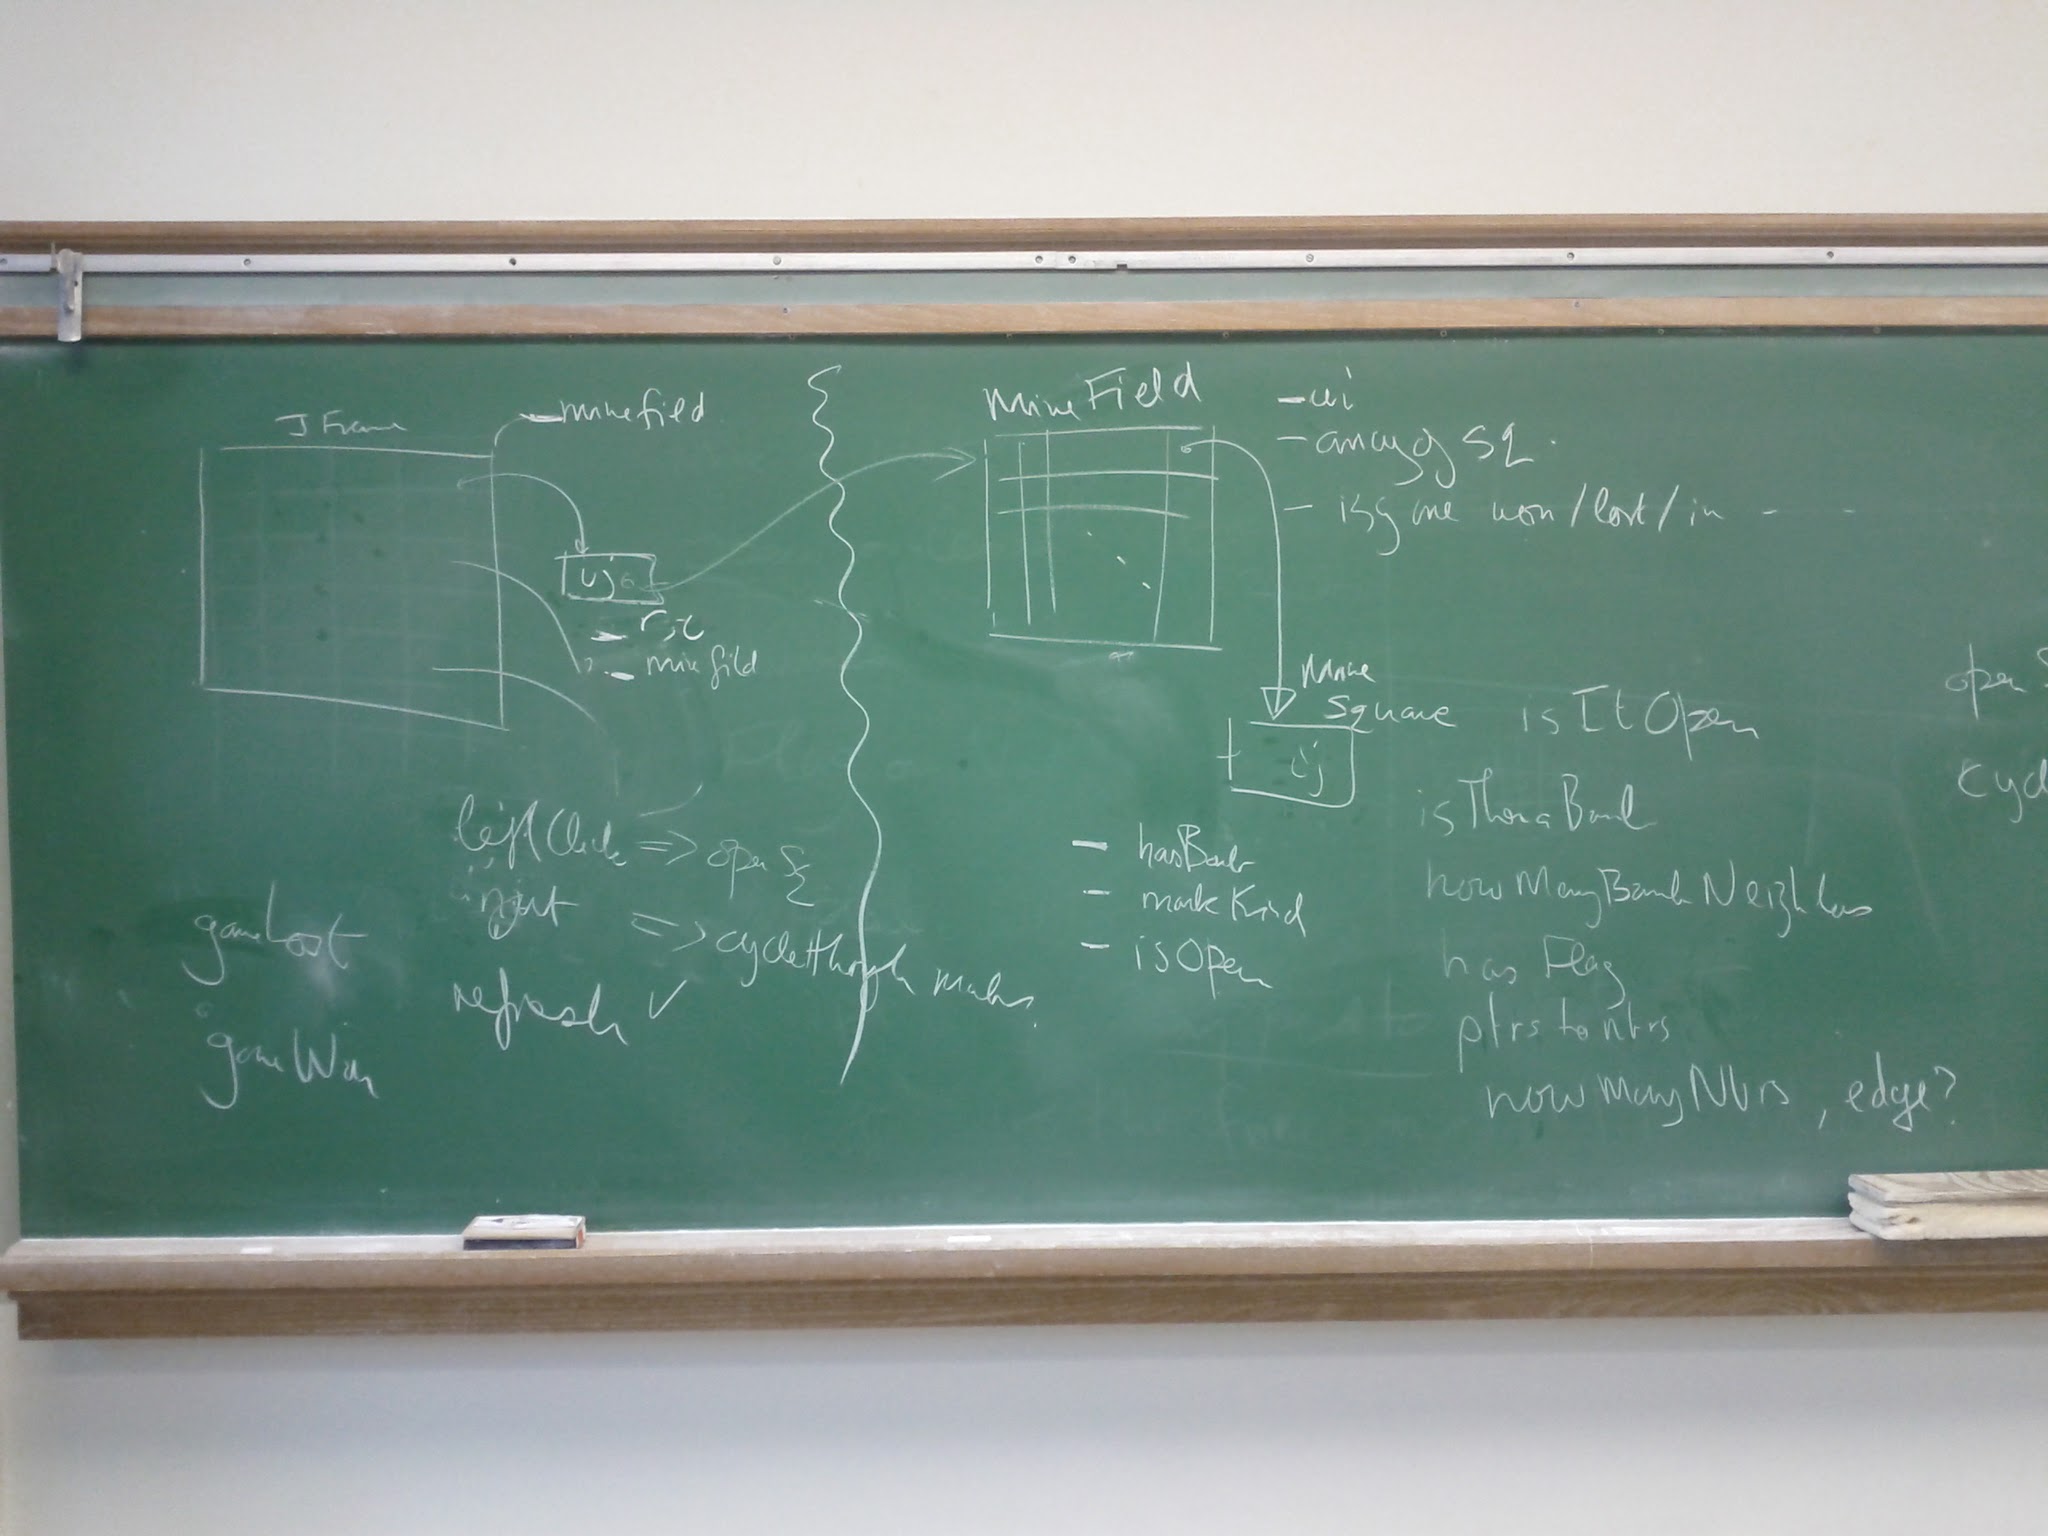 JFrame
minefield
ij
r, c
minefild
leftClick => open {
right => cyclethrough marks
refresh ✓
gameLost
gameWin
MineField
- ui
- array of sq.
- isgame won/lost/in - -
Mine
Square
ij
- hasBomb
- markKind
- isOpen
isItOpen
isTheraBomb
howManyBombNeighbors
has Flag
ptrs to nbrs
howManyNbrs, edge?
open